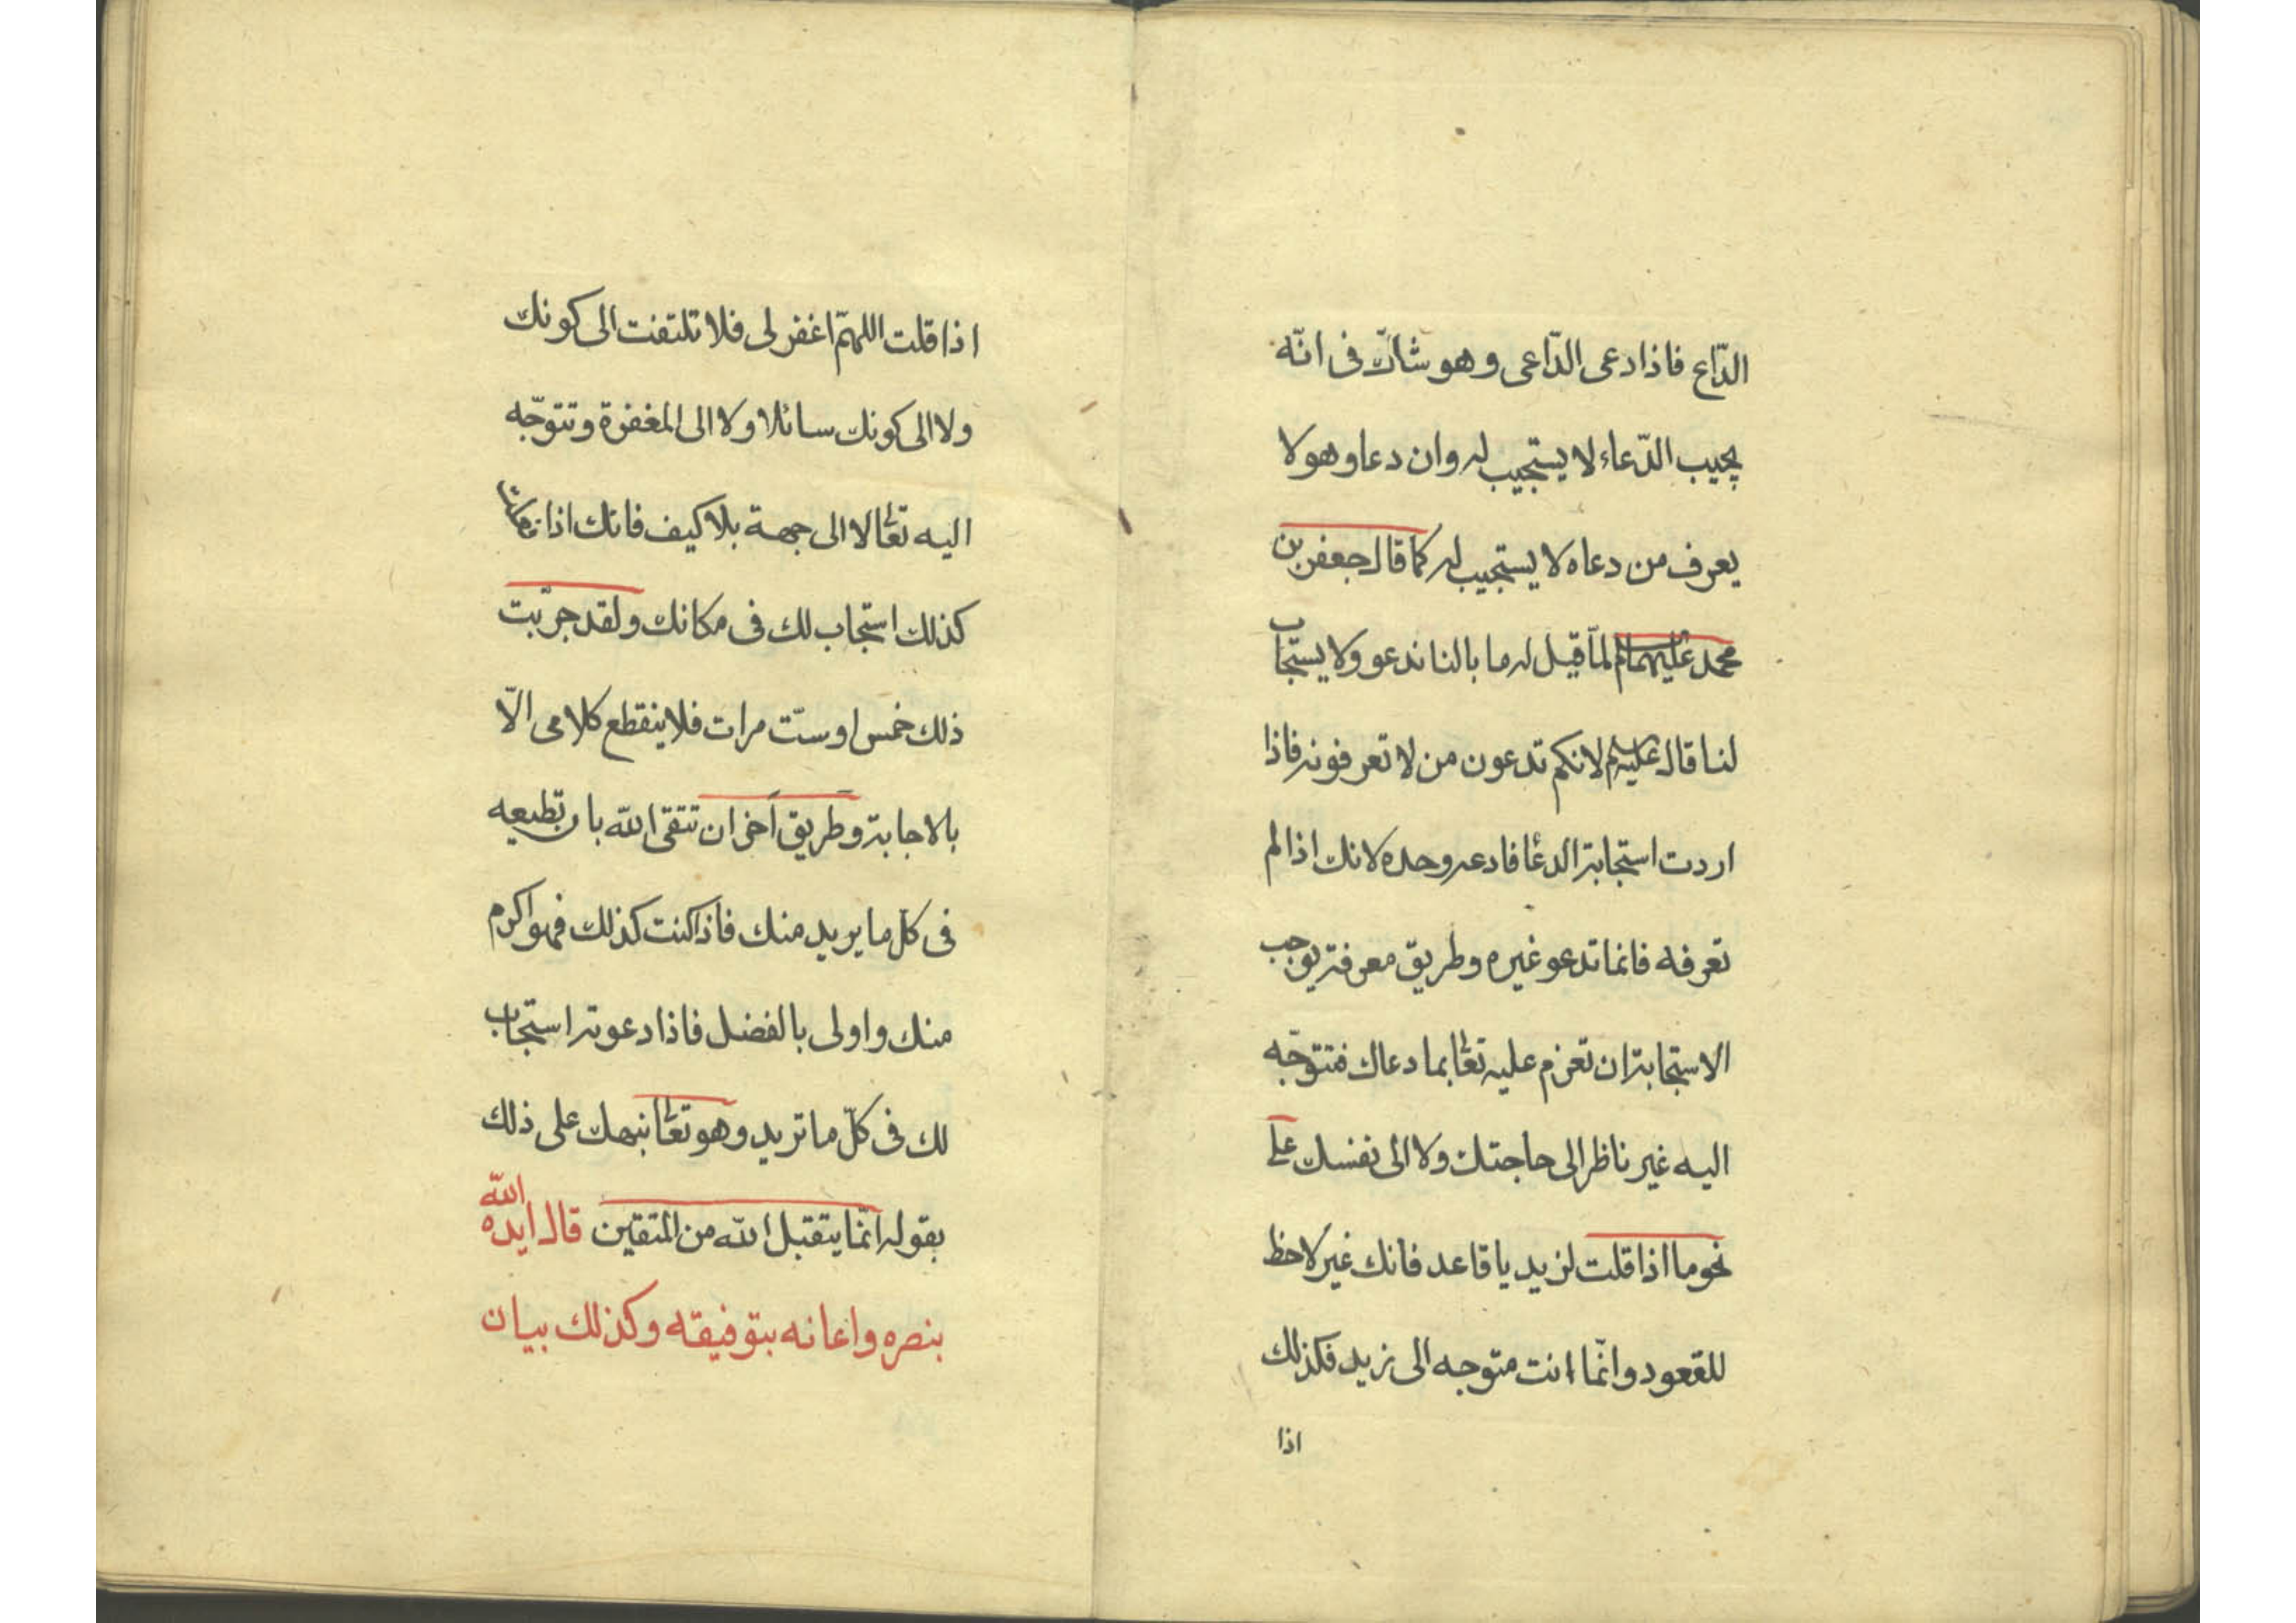 الدّاع فاذا دعى الدّاعى و هو شاكّ فى انّه
يجيب الدّعاء لا يستجيب له وان دعا وهو لا
يعرف من دعاه لا يستجيب له كما قال جعفر بن
محمد عليهما لما قيل له ما بالنا ندعو ولا يستجاب
لنا قال عليه لانكم تدعون من لا تعرفونه فاذا
اردت استجابة الدعا فادعه وحده لانك اذا لم
تعرفه فانما تدعو غيره وطريق معرفته يوجب
الاستجابة ان تعزم عليه تعا بما دعاك فتتوجّه
اليه غير ناظر الى حاجتك ولا الى نفسك على
نحو ما اذا قلت لزيد يا قاعد فانك غير لاحظ
للقعود وانّما انت متوجه الى زيد فكذلك
اذا
اذا قلت اللهمّ اغفر لى فلا تلتفت الى كونك
ولا الى كونك سائلا ولا الى المغفرة وتتوجّه
اليه تعا لا الى جهة بلا كيف فانك اذا
كذلك استجاب لك فى مكانك ولقد جرّبت
ذلك خمس او ستّ مرات فلا ينقطع كلامى الّا
بالاجابة وطريق آخر ان تتقى الله بان تطيعه
فى كلّ ما يريد منك فاذا كنت كذلك فهو اكرم
منك واولى بالفضل فاذا دعوته استجاب
لك فى كلّ ما تريد وهو تعا نبهك على ذلك
بقوله انّما يتقبل الله من المتقين قال ايده الله
بنصره واعانه بتوفيقه وكذلك بيان